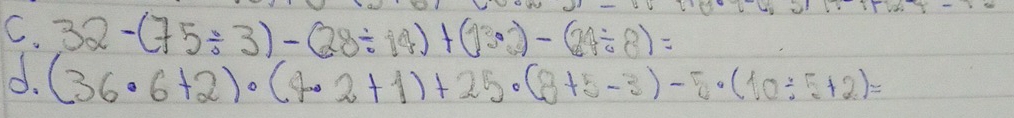 c. 32-(75÷3)-(28÷14)+(13•2)-(24÷8)=
d. (36•6+2)•(4•2+1)+25•(8+5-3)-5•(10÷5+2)=